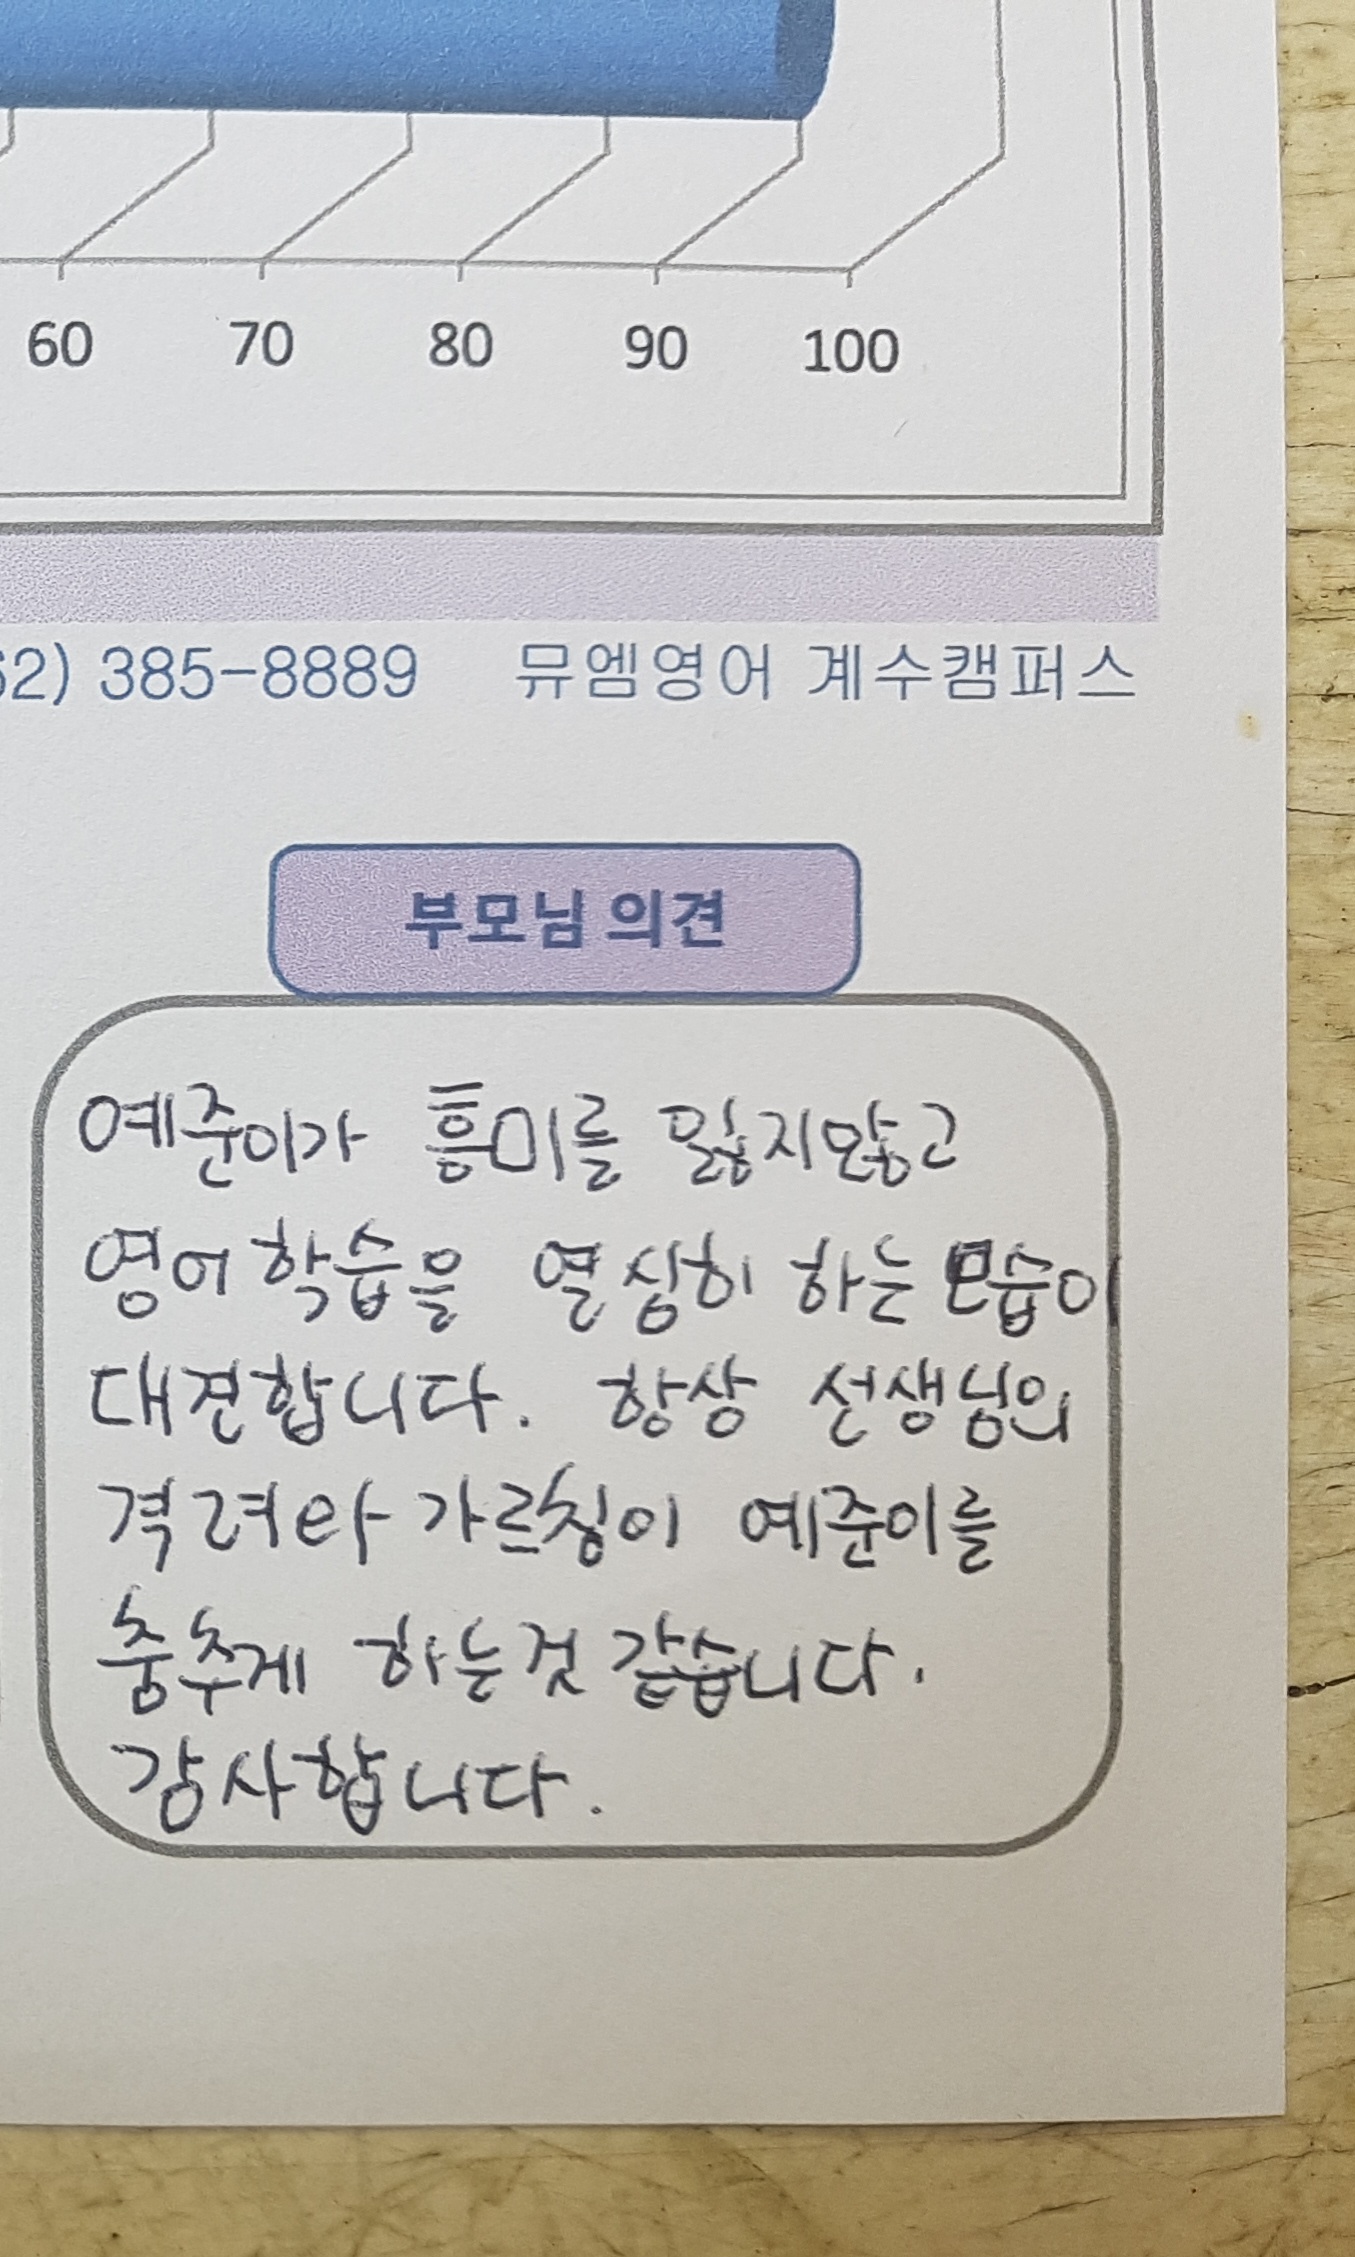 60 70 80 90 100
62) 385-8889 뮤엠영어 계수캠퍼스
부모님 의견
예준이가 흥미를 잃지않고
영어 학습을 열심히 하는 모습이
대견합니다. 항상 선생님의
격려와 가르침이 예준이를
춤추게 하는것 같습니다.
감사합니다.